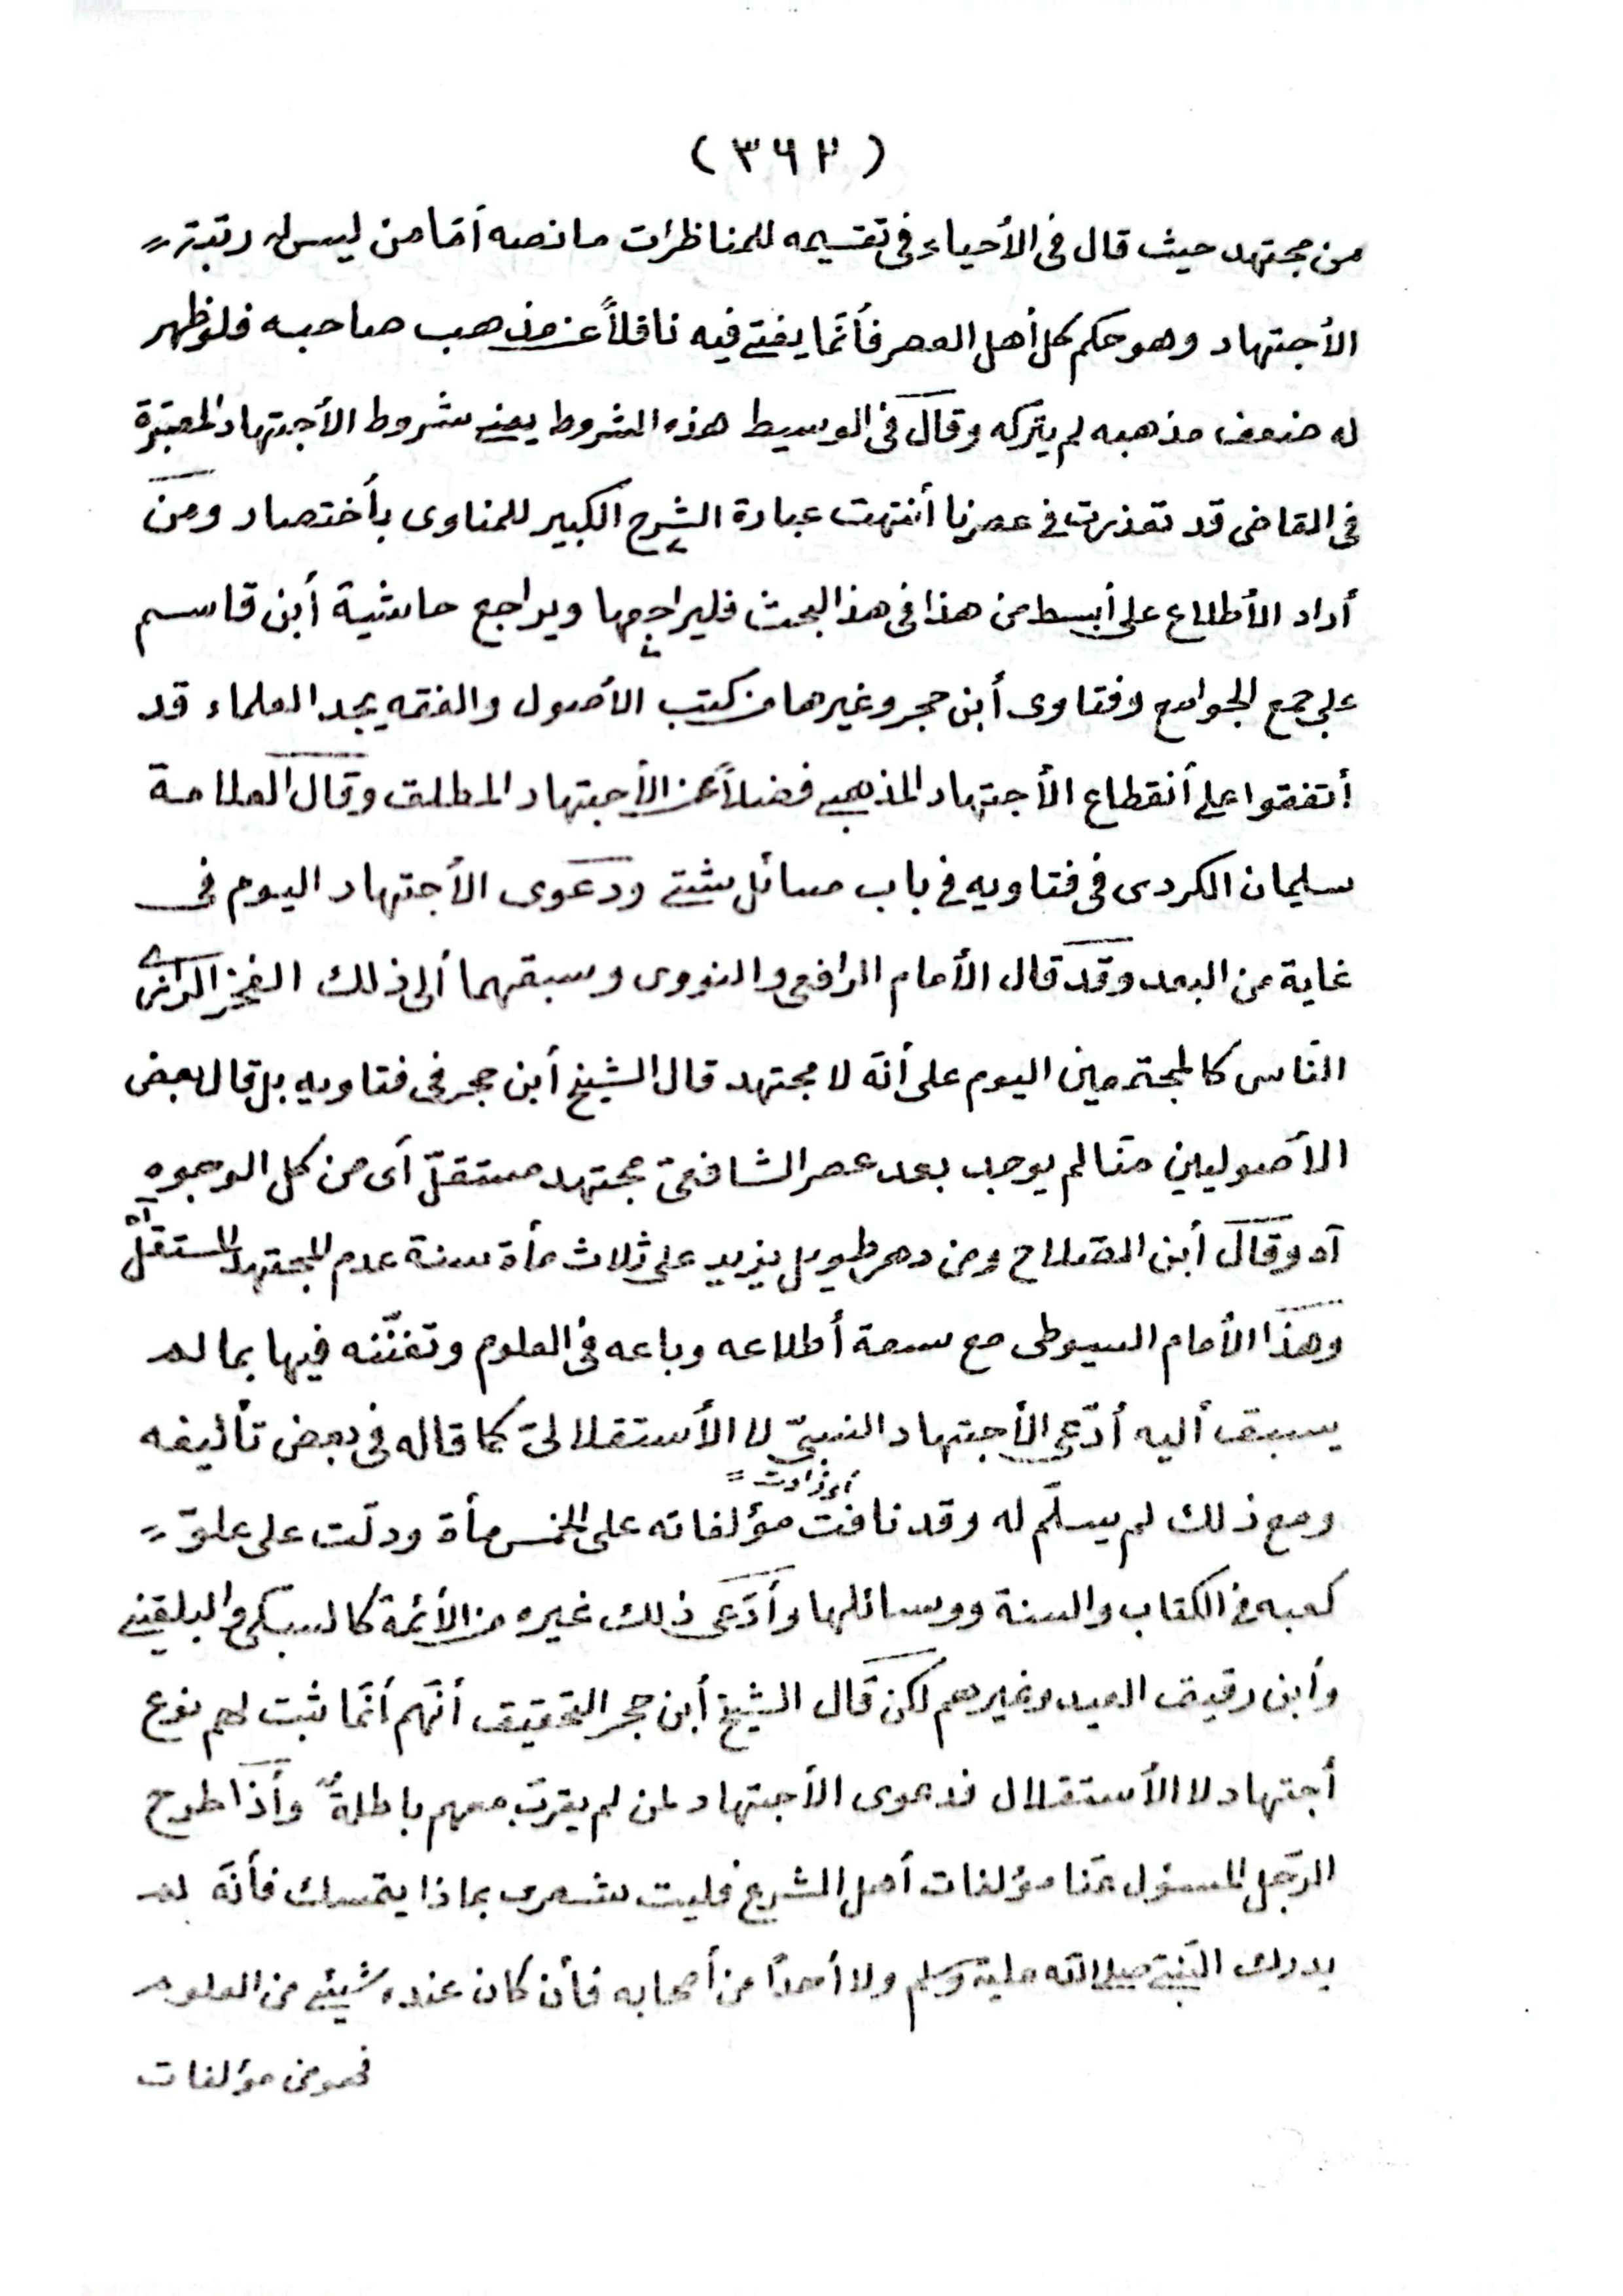 (٣٦٢)
من مجتهد حيث قال فى الأحياء فى تقسيمه للمناظرات ما نصه أمّا من ليس له رتبة
الأجتهاد وهو حكم كل أهل العصر فأنّما يفتى فيه ناقلاً عن مذهب صاحبه فلو ظهر
له ضعف مذهبه لم يتركه وقال فى الوسيط هذه الشروط يعنى شروط الأجتهاد المعتبرة
فى القاضى قد تعذرت فى عصرنا أنتهت عبارة الشرح الكبير للمناوى بأختصار ومن
أراد الأطلاع على أبسط من هذا فى هذا البحث فليراجعها ويراجع حاشية أبن قاسم
على جمع الجوامع وفتاوى أبن حجر وغيرها من كتب الأصول والفقه يجد العلماء قد
أتفقوا على أنقطاع الأجتهاد المذهبى فضلاً عن الأجتهاد المطلق وقال العلامة
سليمان الكردى فى فتاويه فى باب مسائل شتى ودعوى الأجتهاد اليوم فى
غاية من البعد وقد قال الأمام الرافعى والنووى وسبقهما ألى ذلك الفخر الرازى
النّاس كالمجتمعين اليوم على أنّه لا مجتهد قال الشيخ أبن حجر فى فتاويه بل قال بعض
الأصوليين منّا لم يوجد بعد عصر الشافعىّ مجتهد مستقلّ أى من كل الوجوه
آه وقال أبن الصّلاح ومن دهر طويل يزيد على ثلاث مأة سنة عدم المجتهد المستقلّ آه
وهذا الأمام السيوطى مع سعة أطلاعه وباعه فى العلوم وتفنّنه فيها بما لم
يسبق أليه أدّعى الأجتهاد النسبىّ لا الأستقلالىّ كما قاله فى بعض تأليفه
أى زادت =
ومع ذلك لم يسلّم له وقد نافت مؤلفاته على الخمس مأة ودلّت على علوّ
كعبه فى الكتاب والسنة ووسائلها وأدّعى ذلك غيره من الأئمة كالسبكى والبلقينى
وأبن دقيق العيد وغيرهم لكن قال الشيخ أبن حجر التحقيق أنّهم أنّما ثبت لهم نوع
أجتهاد لا الأستقلال فدعوى الأجتهاد لمن لم يقرب معهم باطلةٌ وأذا طرح
الرّجل المسؤل عنّا مؤلفات أهل الشرع فليت شعرى بماذا يتمسك فأنّه لم
يدرك النّبىّ صلى الله عليه وسلم ولا أحداً من أصحابه فأن كان عنده شيئ من العلوم
فهو من مؤلفات